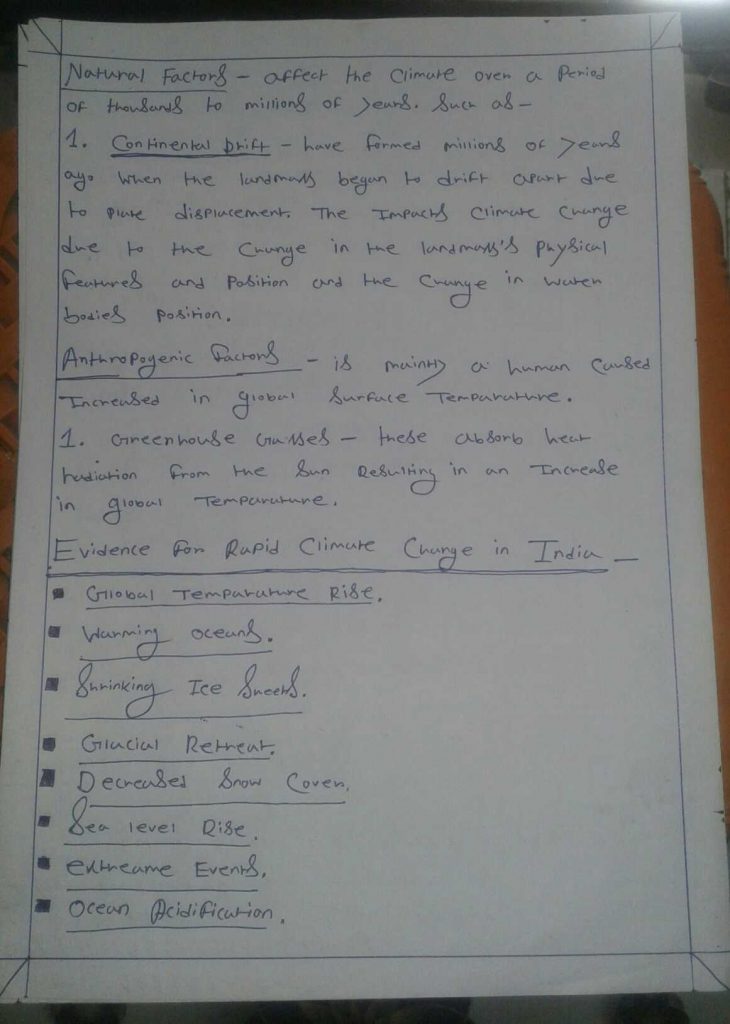 Natural Factors - affect the Climate over a Period
of thousands to millions of years. Such as -
1. Continental Drift - have formed millions of years
ago when the landmass began to drift apart due
to plate displacement. The Impacts Climate Change
due to the Change in the landmass's physical
features and position and the Change in water
bodies position.
Anthropogenic Factors - is mainly a human caused
Increased in global Surface Temparature.
1. Greenhouse Gasses - these absorb heat
radiation from the Sun Resulting in an Increase
in global Temparature.
Evidence for Rapid Climate Change in India -
Global Temparature Rise.
Warming Oceans.
Shrinking Ice Sheets.
Glacial Retreat.
Decreased Snow Cover.
Sea level Rise.
extreame Events.
Ocean Acidification.